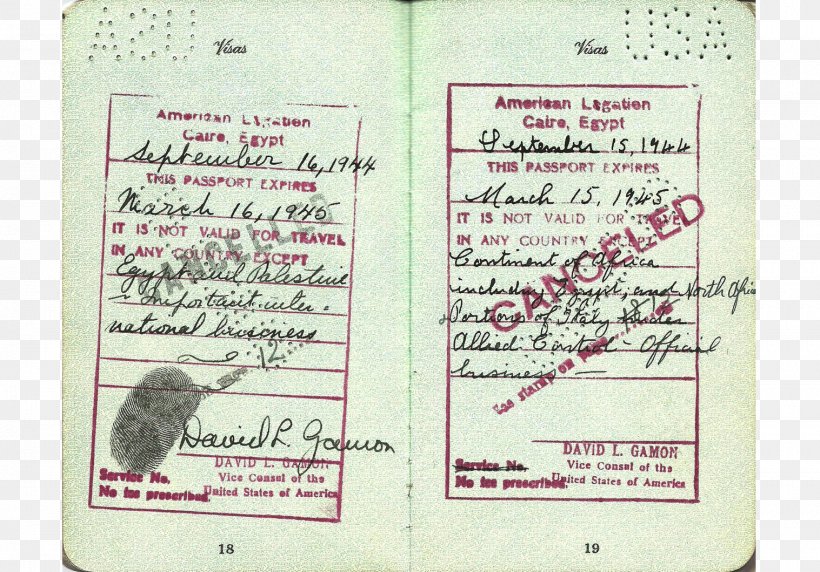 Visas
American Legation
Cairo, Egypt
September 16, 1944
THIS PASSPORT EXPIRES
March 16, 1945
IT IS NOT VALID FOR TRAVEL
IN ANY COUNTRY EXCEPT
Egypt and Palestine
- important inter-
national business
CANCELLED
12
David L. Gamon
DAVID L. GAMON
Service No.
Vice Consul of the
No fee prescribed.
United States of America
18
USA
Visas
American Legation
Cairo, Egypt
September 15, 1944
THIS PASSPORT EXPIRES
March 15, 1945
IT IS NOT VALID FOR TRAVEL
IN ANY COUNTRY EXCEPT
Continent of Africa
including Egypt, and North Africa
Portions of Italy under
Allied Control - Official
business -
CANCELLED
See stamp on
DAVID L. GAMON
Service No.
Vice Consul of the
No fee prescribed.
United States of America
19